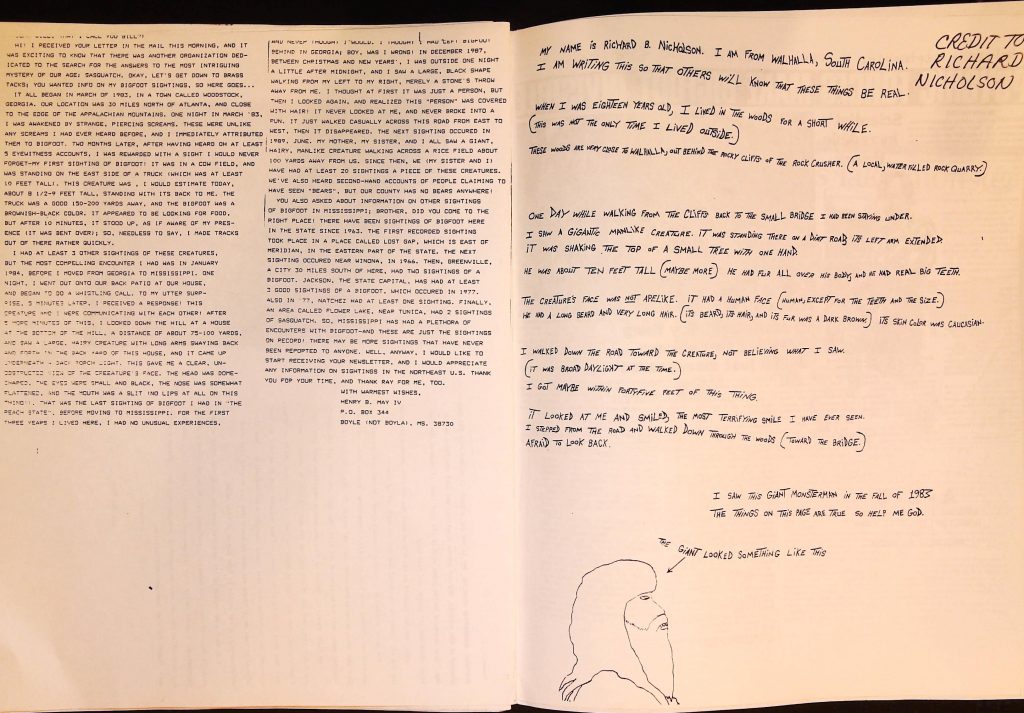 HI! I RECEIVED YOUR LETTER IN THE MAIL THIS MORNING, AND IT
WAS EXCITING TO KNOW THAT THERE WAS ANOTHER ORGANIZATION DED-
ICATED TO THE SEARCH FOR THE ANSWERS TO THE MOST INTRIGUING
MYSTERY OF OUR AGE; SASQUATCH. OKAY, LET'S GET DOWN TO BRASS
TACKS; YOU WANTED INFO ON MY BIGFOOT SIGHTINGS, SO HERE GOES...
IT ALL BEGAN IN MARCH OF 1983, IN A TOWN CALLED WOODSTOCK,
GEORGIA. OUR LOCATION WAS 30 MILES NORTH OF ATLANTA, AND CLOSE
TO THE EDGE OF THE APPALACHIAN MOUNTAINS. ONE NIGHT IN MARCH '83,
I WAS AWAKENED BY STRANGE, PIERCING SCREAMS. THESE WERE UNLIKE
ANY SCREAMS I HAD EVER HEARD BEFORE, AND I IMMEDIATELY ATTRIBUTED
THEM TO BIGFOOT. TWO MONTHS LATER, AFTER HAVING HEARD ON AT LEAST
5 EYEWITNESS ACCOUNTS, I WAS REWARDED WITH A SIGHT I WOULD NEVER
FORGET-MY FIRST SIGHTING OF BIGFOOT! IT WAS IN A COW FIELD, AND
WAS STANDING ON THE EAST SIDE OF A TRUCK (WHICH WAS AT LEAST
10 FEET TALL). THIS CREATURE WAS , I WOULD ESTIMATE TODAY,
ABOUT 8 1/2-9 FEET TALL, STANDING WITH ITS BACK TO ME. THE
TRUCK WAS A GOOD 150-200 YARDS AWAY, AND THE BIGFOOT WAS A
BROWNISH-BLACK COLOR. IT APPEARED TO BE LOOKING FOR FOOD,
BUT AFTER 10 MINUTES, IT STOOD UP, AS IF AWARE OF MY PRES-
ENCE (IT WAS BENT OVER); SO, NEEDLESS TO SAY, I MADE TRACKS
OUT OF THERE RATHER QUICKLY.
I HAD AT LEAST 3 OTHER SIGHTINGS OF THESE CREATURES,
BUT THE MOST COMPELLING ENCOUNTER I HAD WAS IN JANUARY
1984, BEFORE I MOVED FROM GEORGIA TO MISSISSIPPI. ONE
NIGHT, I WENT OUT ONTO OUR BACK PATIO AT OUR HOUSE,
AND BEGAN TO DO A WHISTLING CALL. TO MY UTTER SURP-
RISE, 5 MINUTES LATER, I RECEIVED A RESPONSE! THIS
CREATURE AND I WERE COMMUNICATING WITH EACH OTHER! AFTER
5 MORE MINUTES OF THIS, I LOOKED DOWN THE HILL AT A HOUSE
AT THE BOTTOM OF THE HILL, A DISTANCE OF ABOUT 75-100 YARDS,
AND SAW A LARGE, HAIRY CREATURE WITH LONG ARMS SWAYING BACK
AND FORTH IN THE BACK YARD OF THIS HOUSE, AND IT CAME UP
UNDERNEATH A BACK PORCH LIGHT. THIS GAVE ME A CLEAR, UN-
OBSTRUCTED VIEW OF THE CREEATURE'S FACE. THE HEAD WAS DOME-
SHAPED, THE EYES WERE SMALL AND BLACK, THE NOSE WAS SOMEWHAT
FLATTENED, AND THE MOUTH WAS A SLIT (NO LIPS AT ALL ON THIS
THING!). THAT WAS THE LAST SIGHTING OF BIGFOOT I HAD IN "THE
PEACH STATE", BEFORE MOVING TO MISSISSIPPI. FOR THE FIRST
THREE YEARS I LIVED HERE, I HAD NO UNUSUAL EXPERIENCES,
AND NEVER THOUGHT I WOULD. I THOUGHT I HAD LEFT BIGFOOT
BEHIND IN GEORGIA; BOY, WAS I WRONG! IN DECEMBER 1987,
BETWEEN CHRISTMAS AND NEW YEARS', I WAS OUTSIDE ONE NIGHT
A LITTLE AFTER MIDNIGHT, AND I SAW A LARGE, BLACK SHAPE
WALKING FROM MY LEFT TO MY RIGHT, MERELY A STONE'S THROW
AWAY FROM ME. I THOUGHT AT FIRST IT WAS JUST A PERSON, BUT
THEN I LOOKED AGAIN, AND REALIZED THIS "PERSON" WAS COVERED
WITH HAIR! IT NEVER LOOKED AT ME, AND NEVER BROKE INTO A
RUN. IT JUST WALKED CASUALLY ACROSS THIS ROAD FROM EAST TO
WEST, THEN IT DISAPPEARED. THE NEXT SIGHTING OCCURED IN
1989, JUNE. MY MOTHER, MY SISTER, AND I ALL SAW A GIANT,
HAIRY, MANLIKE CREATURE WALKING ACROSS A RICE FIELD ABOUT
100 YARDS AWAY FROM US. SINCE THEN, WE (MY SISTER AND I)
HAVE HAD AT LEAST 20 SIGHTINGS A PIECE OF THESE CREATURES.
WE'VE ALSO HEARD SECOND-HAND ACCOUNTS OF PEOPLE CLAIMING TO
HAVE SEEN "BEARS", BUT OUR COUNTY HAS NO BEARS ANYWHERE!
YOU ALSO ASKED ABOUT INFORMATION ON OTHER SIGHTINGS
OF BIGFOOT IN MISSISSIPPI; BROTHER, DID YOU COME TO THE
RIGHT PLACE! THERE HAVE BEEN SIGHTINGS OF BIGFOOT HERE
IN THE STATE SINCE 1963. THE FIRST RECORDED SIGHTING
TOOK PLACE IN A PLACE CALLED LOST GAP, WHICH IS EAST OF
MERIDIAN, IN THE EASTERN PART OF THE STATE. THE NEXT
SIGHTING OCCURED NEAR WINONA, IN 1966. THEN, GREENVILLE,
A CITY 30 MILES SOUTH OF HERE, HAD TWO SIGHTINGS OF A
BIGFOOT. JACKSON, THE STATE CAPITAL, HAS HAD AT LEAST
3 GOOD SIGHTINGS OF A BIGFOOT, WHICH OCCURED IN 1977.
ALSO IN '77, NATCHEZ HAD AT LEAST ONE SIGHTING. FINALLY,
AN AREA CALLED FLOWER LAKE, NEAR TUNICA, HAD 2 SIGHTINGS
OF SASQUATCH. SO, MISSISSIPPI HAS HAD A PLETHORA OF
ENCOUNTERS WITH BIGFOOT-AND THESE ARE JUST THE SIGHTINGS
ON RECORD! THERE MAY BE MORE SIGHTINGS THAT HAVE NEVER
BEEN REPORTED TO ANYONE. WELL, ANYWAY, I WOULD LIKE TO
START RECEIVING YOUR NEWSLETTER, AND I WOULD APPRECIATE
ANY INFORMATION ON SIGHTINGS IN THE NORTHEAST U.S. THANK
YOU FOR YOUR TIME, AND THANK RAY FOR ME, TOO.
WITH WARMEST WISHES,
HENRY B. MAY IV
P.O. BOX 344
BOYLE (NOT BOYLA), MS. 38730
CREDIT TO
RICHARD
NICHOLSON
MY NAME IS RICHARD B. NICHOLSON. I AM FROM WALHALLA, SOUTH CAROLINA.
I AM WRITING THIS SO THAT OTHERS WILL KNOW THAT THESE THINGS BE REAL.
WHEN I WAS EIGHTEEN YEARS OLD, I LIVED IN THE WOODS FOR A SHORT WHILE.
(THIS WAS NOT THE ONLY TIME I LIVED OUTSIDE.)
THESE WOODS ARE VERY CLOSE TO WALHALLA, OUT BEHIND THE ROCKY CLIFFS OF THE ROCK CRUSHER. (A LOCAL, WATER FILLED ROCK QUARRY.)
ONE DAY WHILE WALKING FROM THE CLIFFS BACK TO THE SMALL BRIDGE I HAD BEEN STAYING UNDER.
I SAW A GIGANTIC MANLIKE CREATURE. IT WAS STANDING THERE ON A DIRT ROAD, ITS LEFT ARM EXTENDED.
IT WAS SHAKING THE TOP OF A SMALL TREE WITH ONE HAND.
HE WAS ABOUT TEN FEET TALL (MAYBE MORE) HE HAD FUR ALL OVER HIS BODY, AND HE HAD REAL BIG TEETH.
THE CREATURE'S FACE WAS NOT APELIKE. IT HAD A HUMAN FACE (HUMAN, EXCEPT FOR THE TEETH AND THE SIZE.)
HE HAD A LONG BEARD AND VERY LONG HAIR. (ITS BEARD, ITS HAIR, AND ITS FUR WAS A DARK BROWN) ITS SKIN COLOR WAS CAUCASIAN.
I WALKED DOWN THE ROAD TOWARD THE CREATURE, NOT BELIEVING WHAT I SAW.
(IT WAS BROAD DAYLIGHT AT THE TIME.)
I GOT MAYBE WITHIN FORTYFIVE FEET OF THIS THING.
IT LOOKED AT ME AND SMILED, THE MOST TERRIFYING SMILE I HAVE EVER SEEN.
I STEPPED FROM THE ROAD AND WALKED DOWN THROUGH THE WOODS (TOWARD THE BRIDGE.)
AFRAID TO LOOK BACK.
I SAW THIS GIANT MONSTERMAN IN THE FALL OF 1983
THE THINGS ON THIS PAGE ARE TRUE SO HELP ME GOD.
THE GIANT LOOKED SOMETHING LIKE THIS